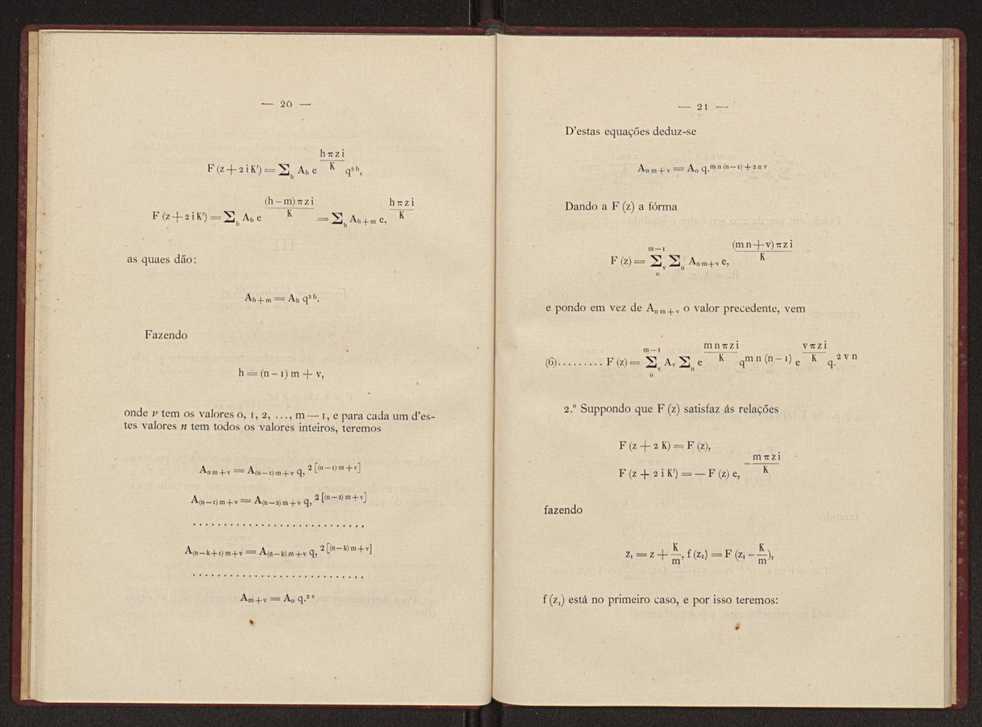 — 20 —
F (z + 2 i K') = Σ_h A_h e^{hπzi/K} q^{2h},
F (z + 2 i K') = Σ_h A_h e^{(h−m)πzi/K} = Σ_h A_{h+m} e,^{hπzi/K}
as quaes dão:
A_{h+m} = A_h q^{2h}.
Fazendo
h = (n − 1) m + v,
onde ν tem os valores 0, 1, 2, ..., m — 1, e para cada um d'es-
tes valores n tem todos os valores inteiros, teremos
A_{nm+v} = A_{(n−1)m+v} q,^{2[(n−1)m+v]}
A_{(n−1)m+v} = A_{(n−2)m+v} q,^{2[(n−2)m+v]}
..........................
A_{(n−k+1)m+v} = A_{(n−k)m+v} q,^{2[(n−k)m+v]}
..........................
A_{m+v} = A_o q.^{2v}
— 21 —
D'estas equações deduz-se
A_{nm+v} = A_o q.^{mn(n−1)+2nv}
Dando a F (z) a fórma
F (z) = Σ_v^{m−1}_0 Σ_n A_{nm+v} e,^{(mn+v)πzi/K}
e pondo em vez de A_{nm+v} o valor precedente, vem
(6)......... F (z) = Σ_v^{m−1}_0 A_v Σ_n e^{mnπzi/K} q^{mn(n−1)} e^{vπzi/K} q.^{2vn}
2.º Suppondo que F (z) satisfaz ás relações
F (z + 2 K) = F (z),
F (z + 2 i K') = — F (z) e,^{−mπzi/K}
fazendo
z₁ = z + K/m, f (z₁) = F (z₁ − K/m),
f (z₁) está no primeiro caso, e por isso teremos: